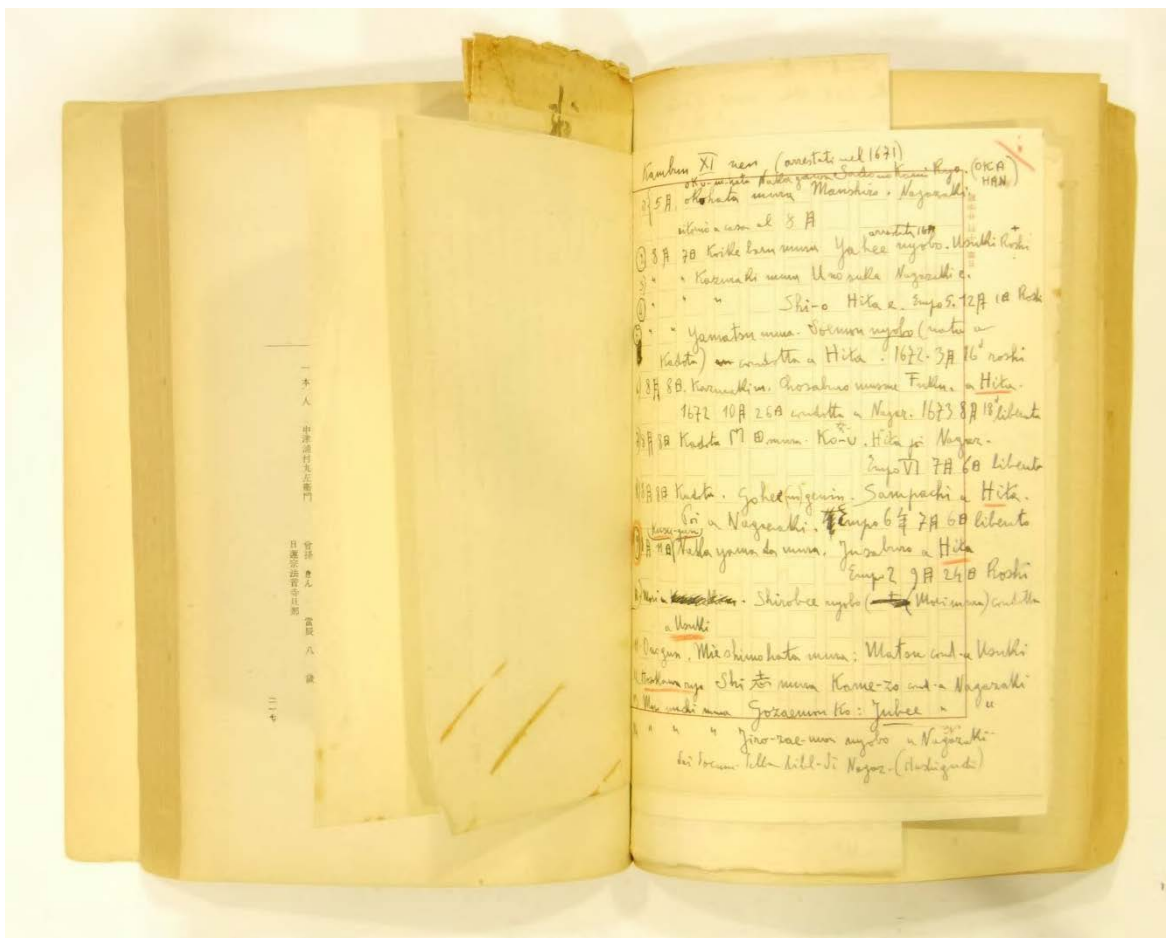 一 本 人 中津浦村九左衛門
曾孫 きん 當辰 八 歳
日蓮宗法音寺旦那
二一七
Kambun XI nen (arrestati nel 1671)
Nakagawa Sado no Kami Ryo. (OKA HAN)
5月. mura Manshiro. Nagasaki.
ritornò a casa al 8月
arrestati 1671
② 8月 7日 Koike baru mura Yahee nyobo. Usuki Roshi +
" " Kazunaki mura Unosuke Nagasaki e.
④ " " " Shi-o Hita e. Empo 5. 12月 1日 Roshi
" " Yamatsu mura. Doemon nyobo (nata a
Kadota) condotta a Hita. 1672. 3月 16 roshi
8月 8日. Chosaburo musume Fuku. a Hita.
1672 10月 26日 condotta a Nagas. 1673 8月 18 liberata
8日 Kadota 門田 mura. Ko-u. Hita poi Nagas.
Empo VI 7月 6日 liberato
8月 8日 Kadota. Gohee genin. Sampachi a Hita.
Poi a Nagasaki. Empo 6年 7月 6日 liberato
11日 Nakayamada mura. Jusaburo a Hita
Empo 2 9月 24日 Roshi
Shirobee nyobo (Mori mura) condotta
a Usuki
Mie shimohata mura: Matsu cond. a Usuki
Shi mura Kame-zo cond. a Nagasaki
mura Gozaemon ko: Jubee " "
" " " Jiro-zae-mon nyobo a Nagasaki
Dai Docum. della Bibl. di Nagas.